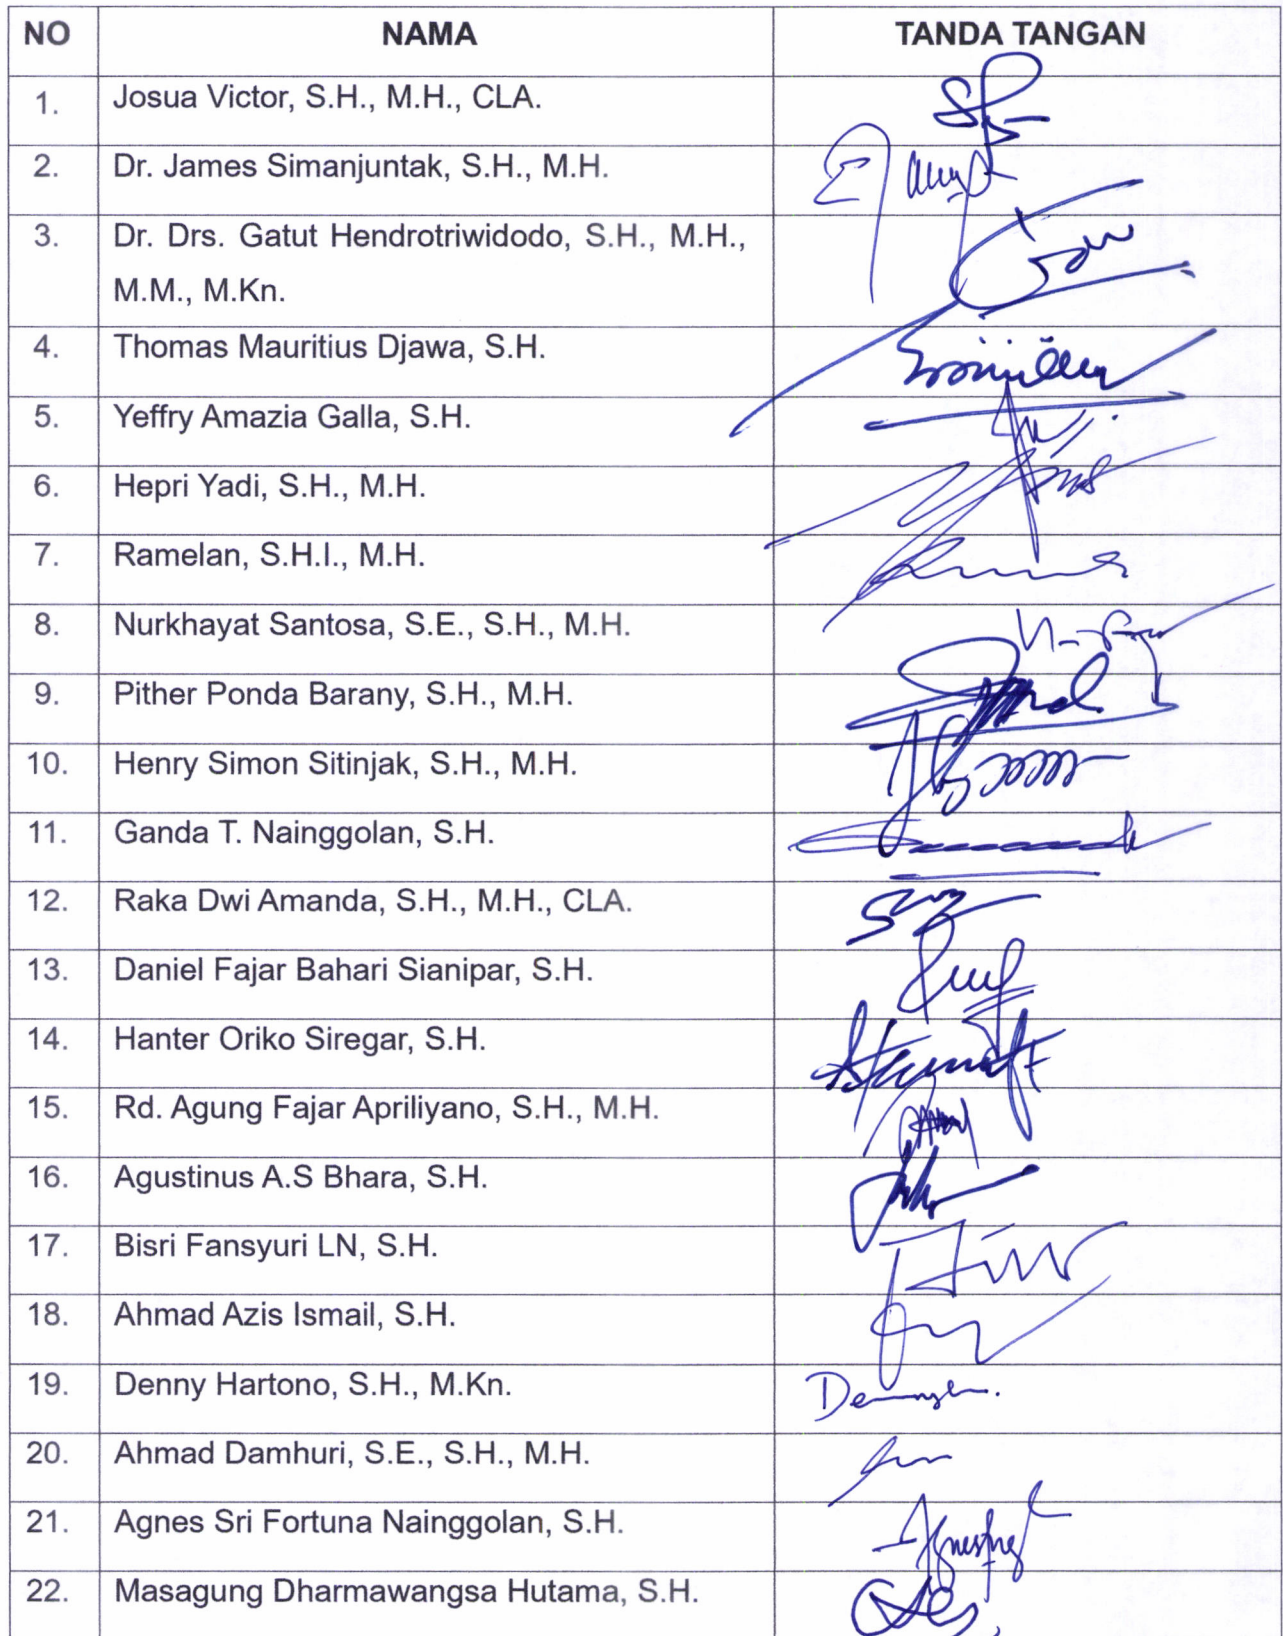 NO NAMA TANDA TANGAN
1. Josua Victor, S.H., M.H., CLA.
2. Dr. James Simanjuntak, S.H., M.H.
3. Dr. Drs. Gatut Hendrotriwidodo, S.H., M.H.,
M.M., M.Kn.
4. Thomas Mauritius Djawa, S.H.
5. Yeffry Amazia Galla, S.H.
6. Hepri Yadi, S.H., M.H.
7. Ramelan, S.H.I., M.H.
8. Nurkhayat Santosa, S.E., S.H., M.H.
9. Pither Ponda Barany, S.H., M.H.
10. Henry Simon Sitinjak, S.H., M.H.
11. Ganda T. Nainggolan, S.H.
12. Raka Dwi Amanda, S.H., M.H., CLA.
13. Daniel Fajar Bahari Sianipar, S.H.
14. Hanter Oriko Siregar, S.H.
15. Rd. Agung Fajar Apriliyano, S.H., M.H.
16. Agustinus A.S Bhara, S.H.
17. Bisri Fansyuri LN, S.H.
18. Ahmad Azis Ismail, S.H.
19. Denny Hartono, S.H., M.Kn.
20. Ahmad Damhuri, S.E., S.H., M.H.
21. Agnes Sri Fortuna Nainggolan, S.H.
22. Masagung Dharmawangsa Hutama, S.H.